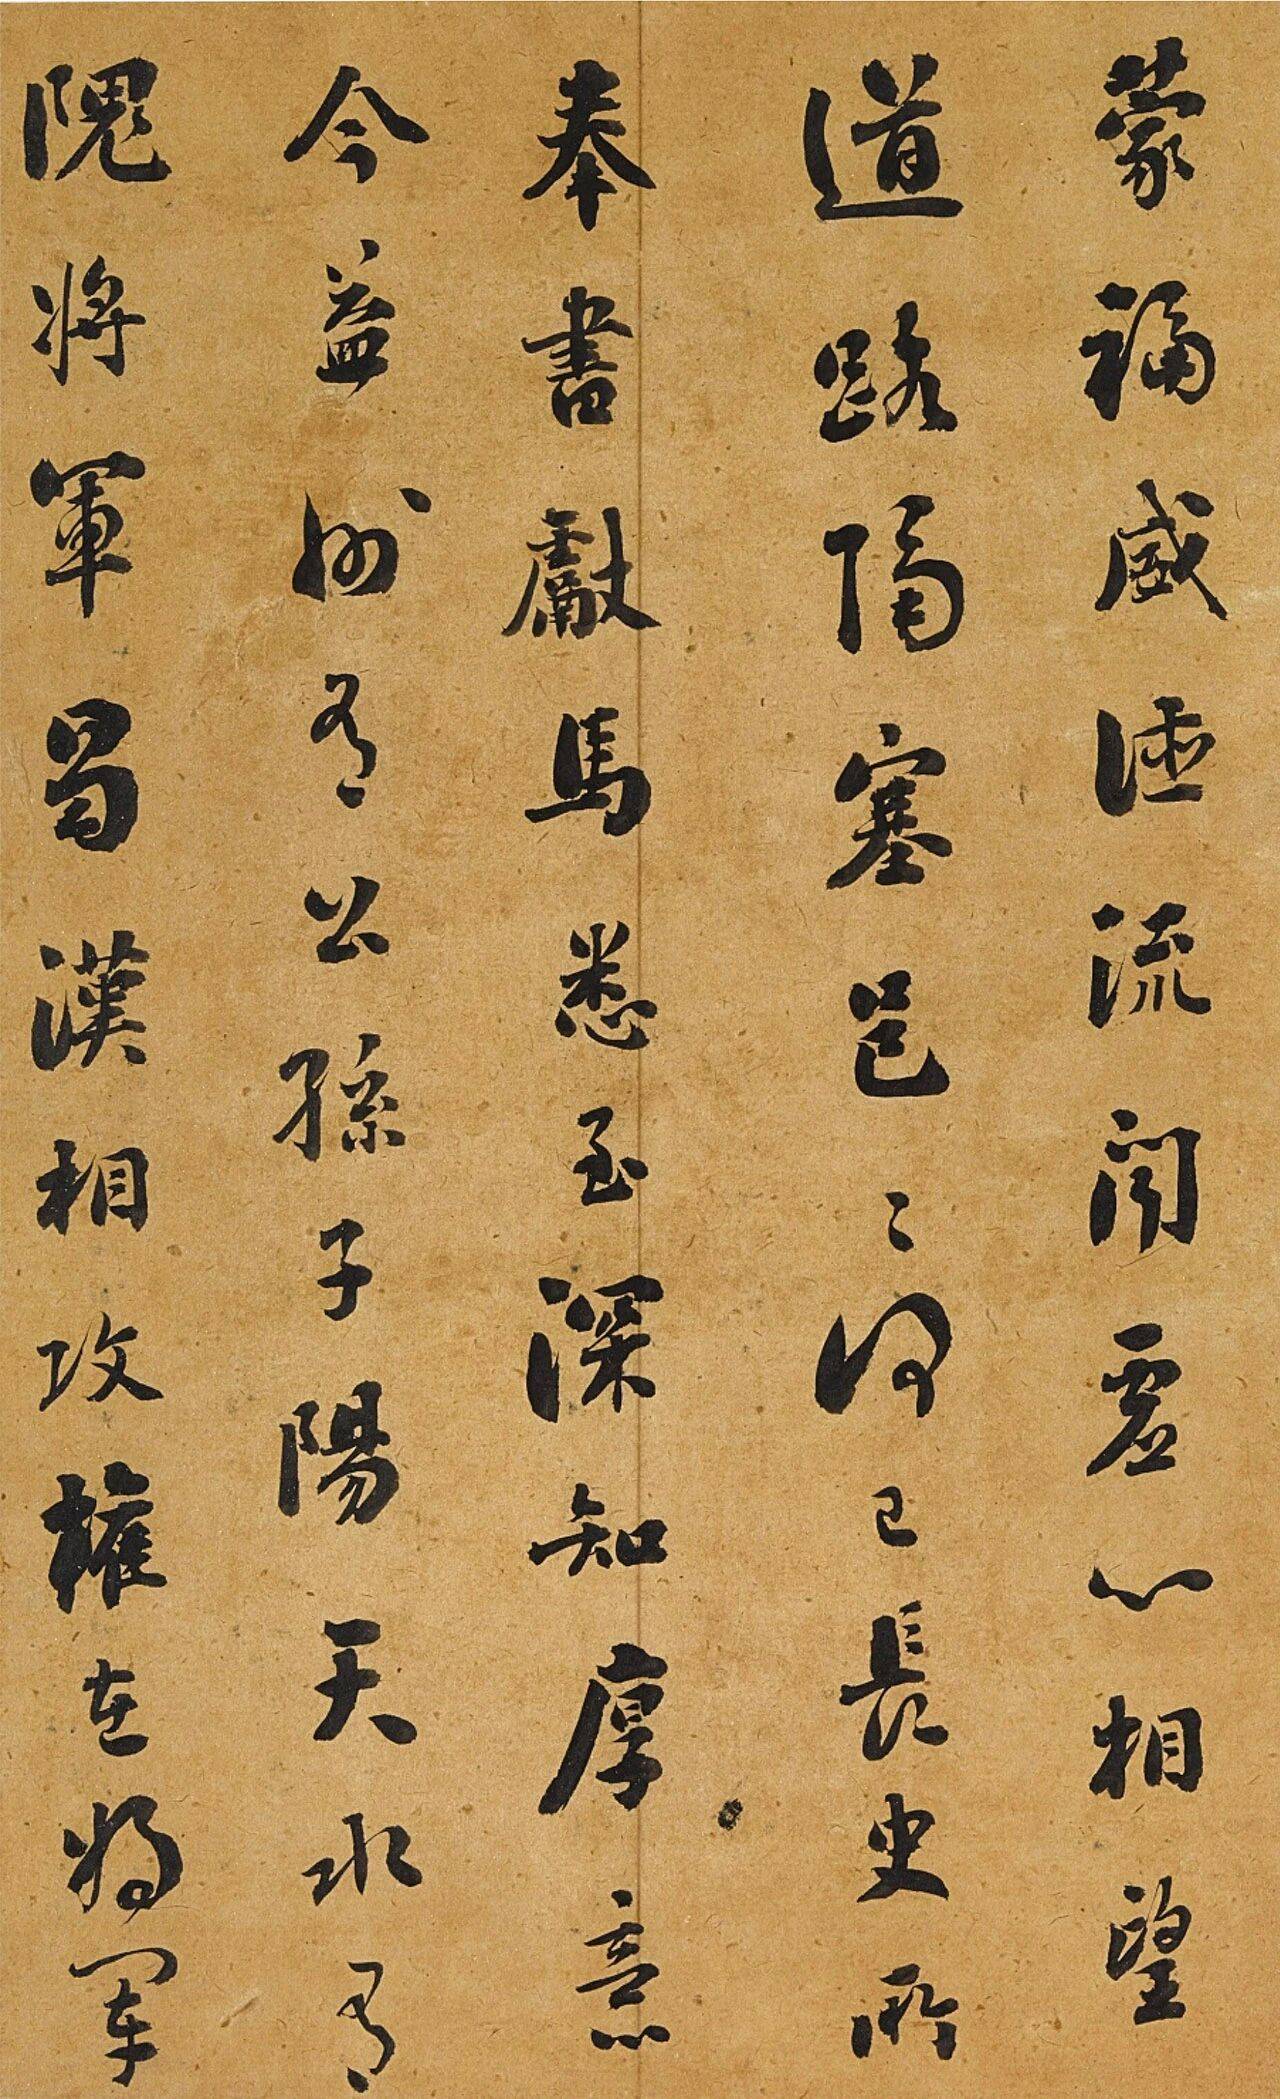 蒙福威德流聞虛心相望
道路隔塞邑〻何已長史所
奉書獻馬悉至深知厚意
今益州有公孫子陽天水有
隗將軍蜀漢相攻權在將軍